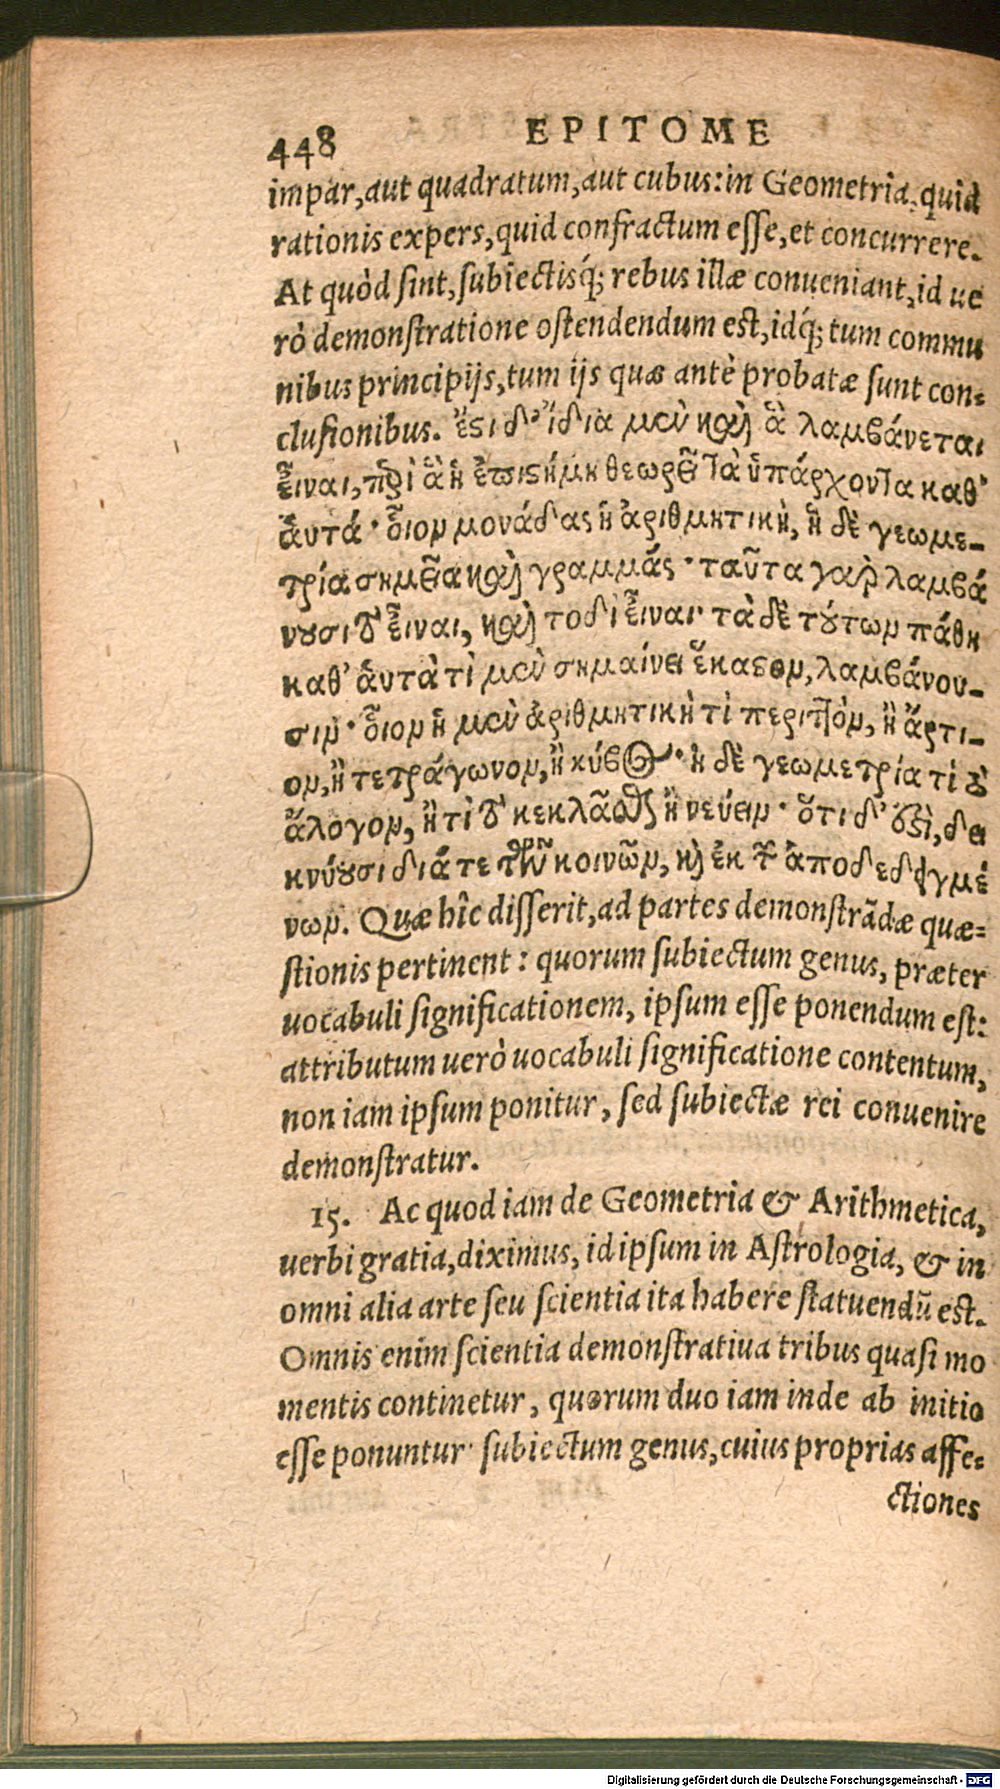 448 EPITOME
impar, aut quadratum, aut cubus: in Geometria, quid
rationis expers, quid confractum esse, et concurrere.
At quòd sint, subiectisq́; rebus illæ conueniant, id ue
rò demonstratione ostendendum est, idq́; tum commu
nibus principijs, tum ijs quæ antè probatæ sunt con-
clusionibus. ἔϛι δ' ἴδια μὲν καὶ ἃ λαμβάνεται
εἶναι, περὶ ἃ ἡ ἐπιϛήμη θεωρεῖ τὰ ὑπάρχοντα καθ'
ἁυτά· οἷον μονάδας ἡ ἀριθμητικὴ, ἡ δὲ γεωμε-
τρία σημεῖα καὶ γραμμάς· ταῦτα γὰρ λαμβά
νουσι τὸ εἶναι, καὶ τοδὶ εἶναι· τὰ δὲ τούτων πάθη
καθ' ἁυτὰ τὶ μὲν σημαίνει ἕκαϛον, λαμβάνου-
σιν· οἷον ἡ μὲν ἀριθμητικὴ τὶ περιττὸν, ἢ ἄρτι-
ον, ἢ τετράγωνον, ἢ κύβος· ἡ δὲ γεωμετρία τὶ τὸ
ἄλογον, ἢ τὶ τὸ κεκλᾶσθαι ἢ νεύειν· ὅτι δ' ἐϛὶ, δει
κνύουσι διά τε τῶν κοινῶν, καὶ ἐκ τῶν ἀποδεδειγμέ
νων. Quæ hîc disserit, ad partes demonstrãdæ quæ-
stionis pertinent: quorum subiectum genus, præter
uocabuli significationem, ipsum esse ponendum est:
attributum uerò uocabuli significatione contentum,
non iam ipsum ponitur, sed subiectæ rei conuenire
demonstratur.
15. Ac quod iam de Geometria & Arithmetica,
uerbi gratia, diximus, id ipsum in Astrologia, & in
omni alia arte seu scientia ita habere statuendũ est.
Omnis enim scientia demonstratiua tribus quasi mo
mentis continetur, quorum duo iam inde ab initio
esse ponuntur· subiectum genus, cuius proprias affe-
ctiones
Digitalisierung gefördert durch die Deutsche Forschungsgemeinschaft - DFG